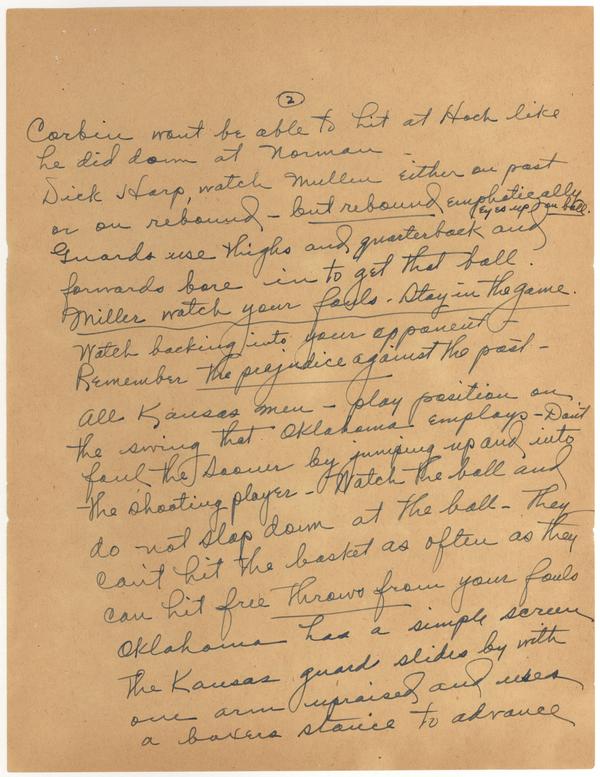 2
Corbin wont be able to hit at Hoch like
he did down at Norman -
Dick Harp, watch Mullen either on post
or on rebound - but rebound emphatically
Eyes up on ball.
Guards use thighs and quarterback and
forwards bore in to get that ball.
Miller watch your fouls. Stay in the game.
Watch backing into your opponent -
Remember the prejudice against the post -
All Kansas men - play position on
the swing that Oklahoma employs - Don't
foul the Sooner by jumping up and into
the shooting player - Watch the ball and
do not slap down at the ball - They
can't hit the basket as often as they
can hit free throws from your fouls
Oklahoma has a simple screen
The Kansas guard slides by with
one arm upraised and uses
a boxers stance to advance